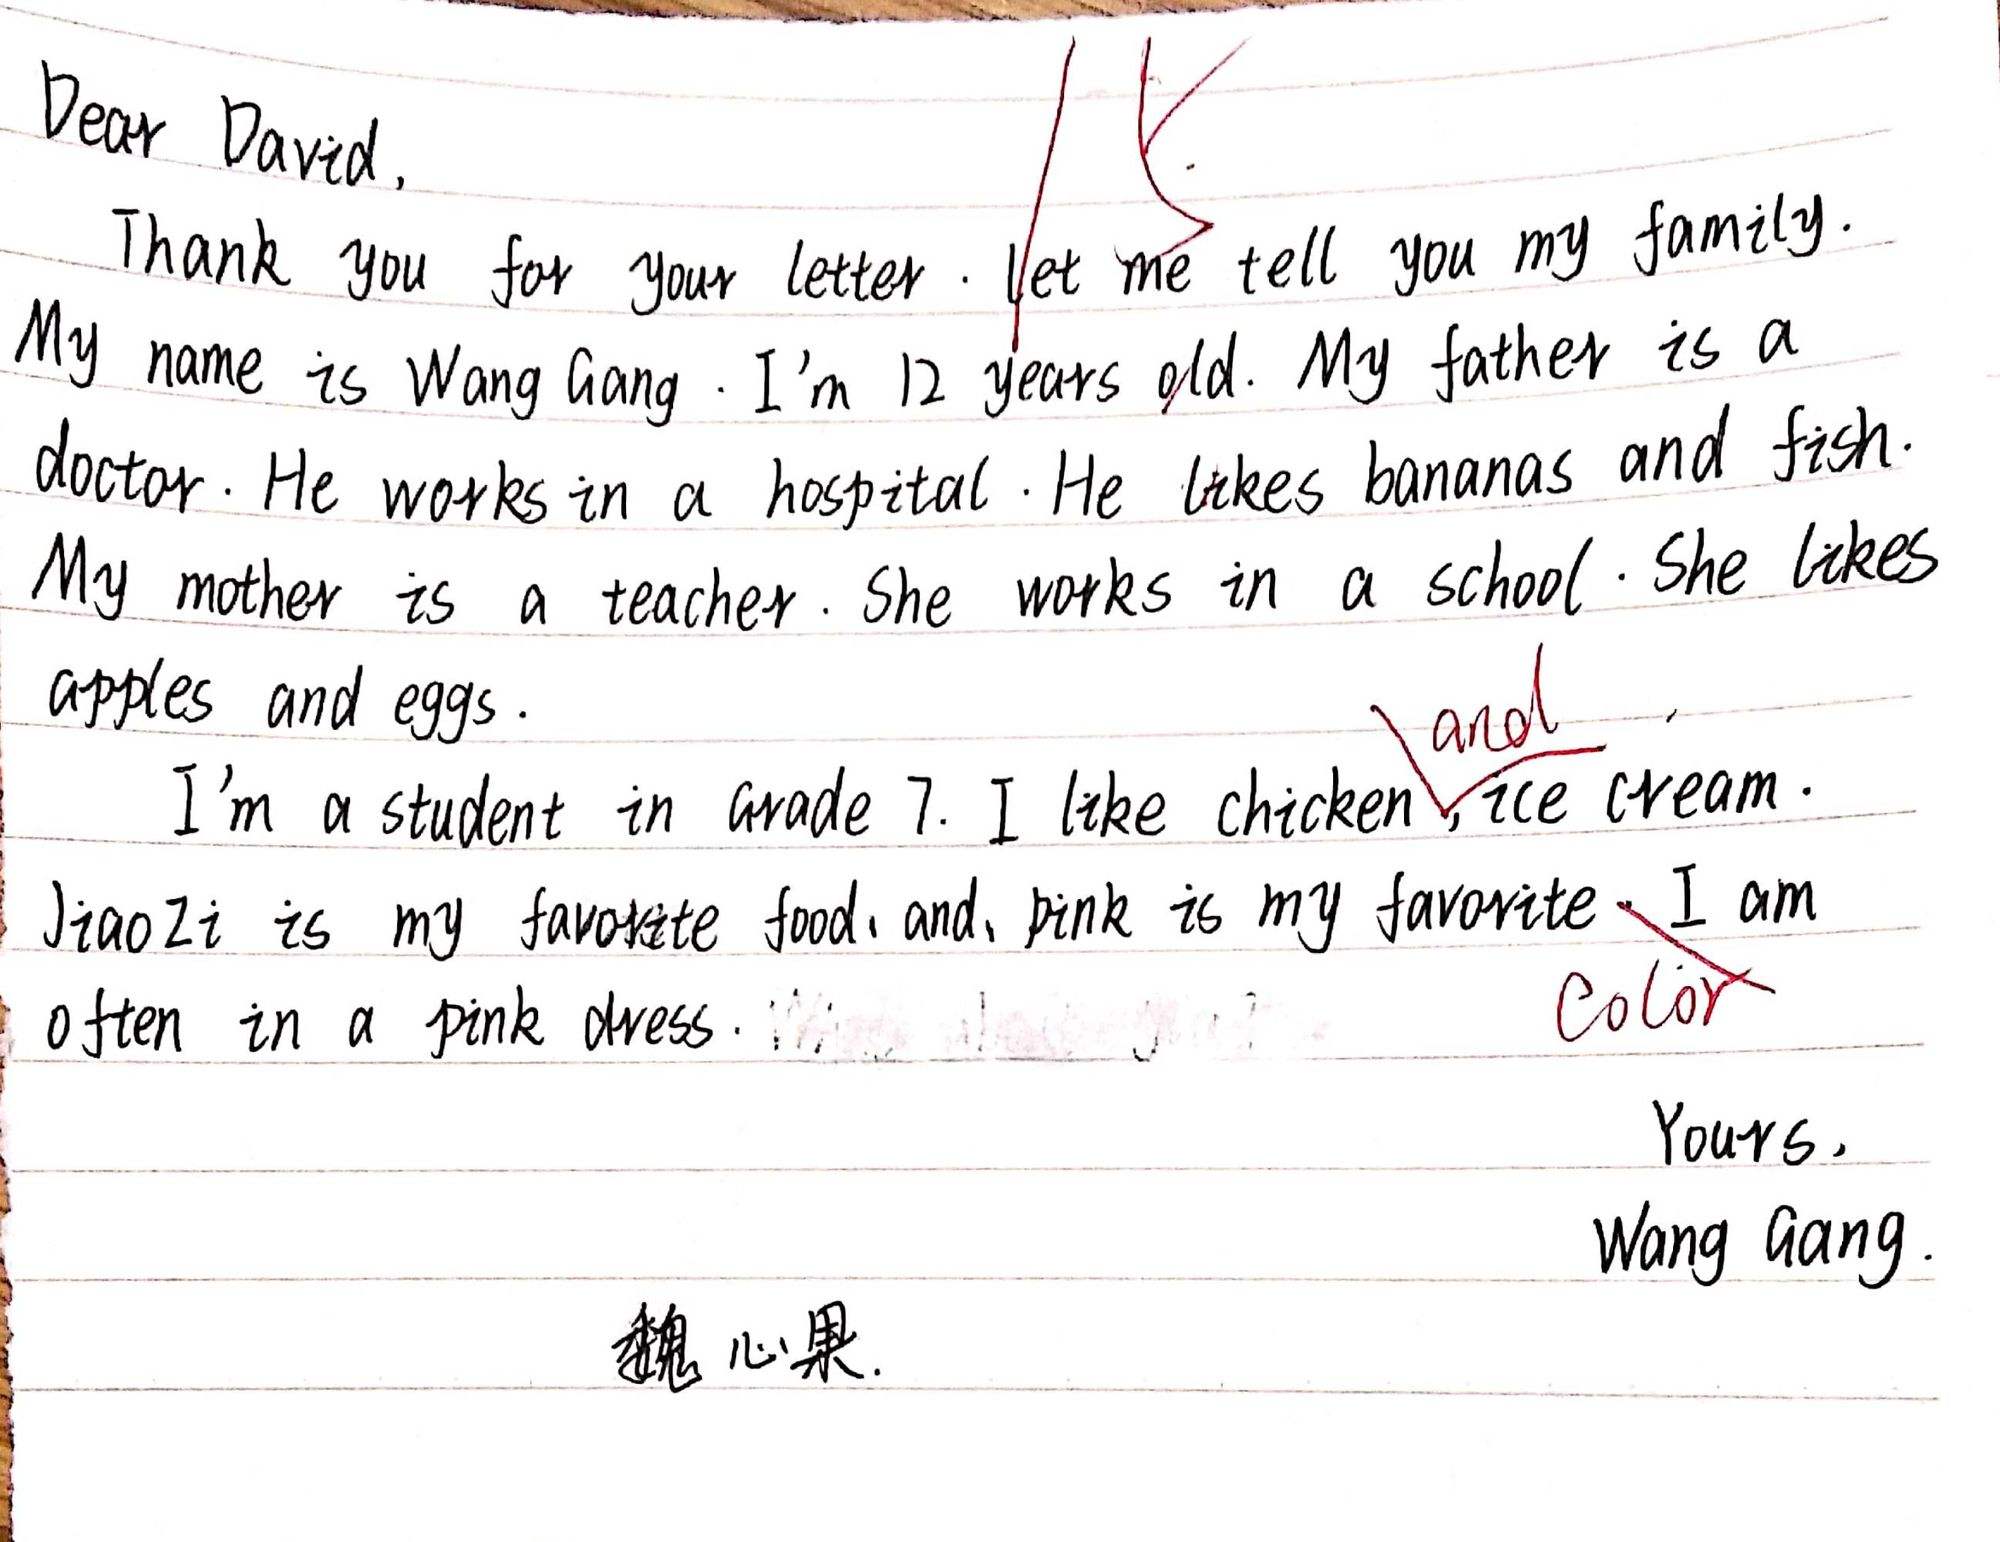 Dear David,
Thank you for your letter. Let me tell you my family.
My name is Wang Gang. I'm 12 years old. My father is a
doctor. He works in a hospital. He likes bananas and fish.
My mother is a teacher. She works in a school. She likes
apples and eggs.
and
I'm a student in Grade 7. I like chicken, ice cream.
JiaoZi is my favorite food, and, pink is my favorite. I am
color
often in a pink dress.
Yours,
Wang Gang.
魏心果.